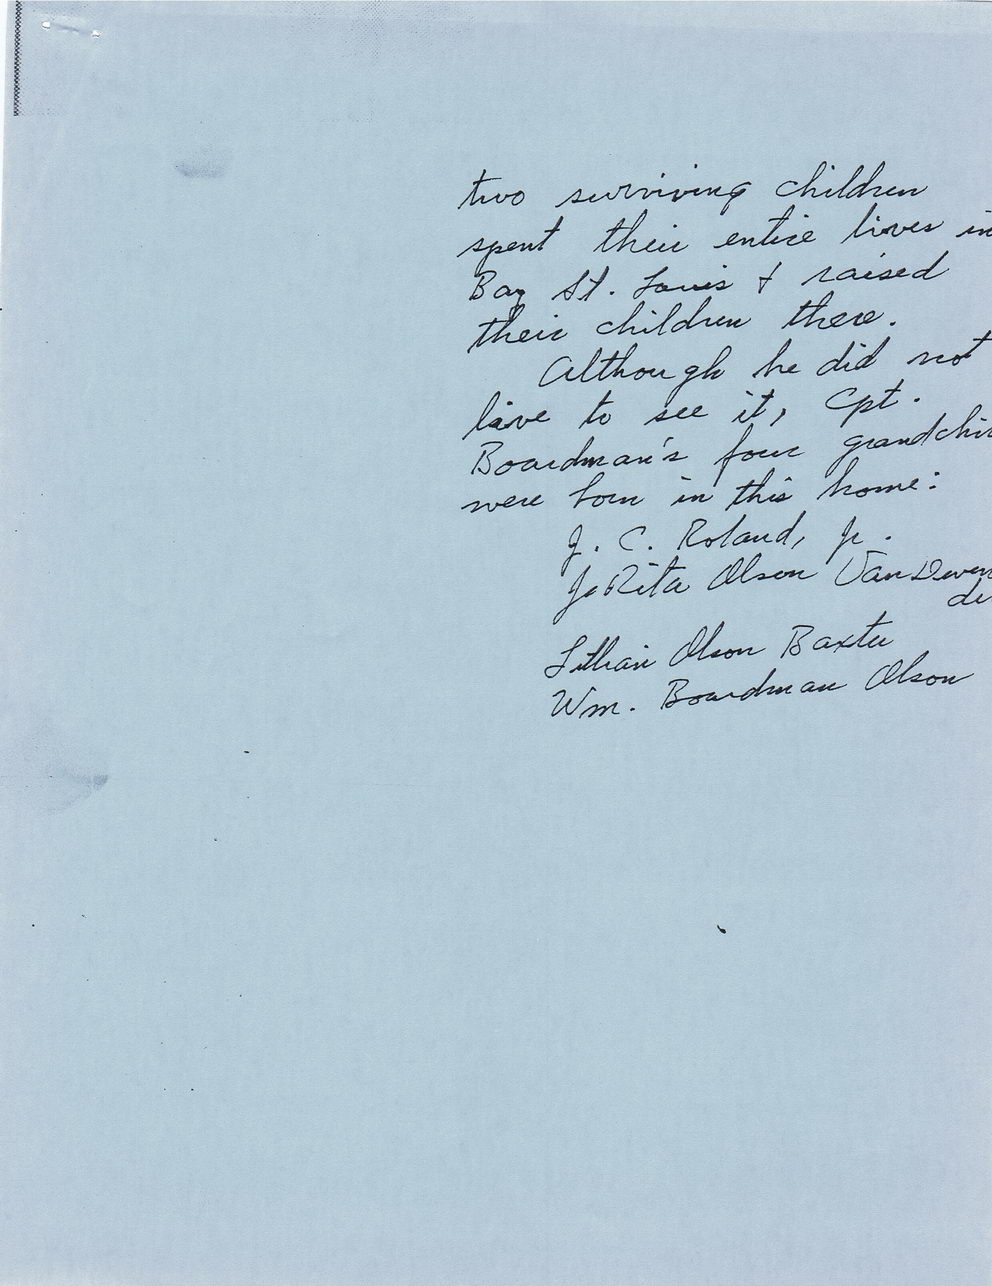 two surviving children
spent their entire lives in
Bay St. Louis & raised
their children there.
Although he did not
live to see it, Cpt.
Boardman's four grandchi
were born in this home:
J. C. Roland, Jr.
JoRita Olson VanDeven
de
Lillian Olson Baxter
Wm. Boardman Olson